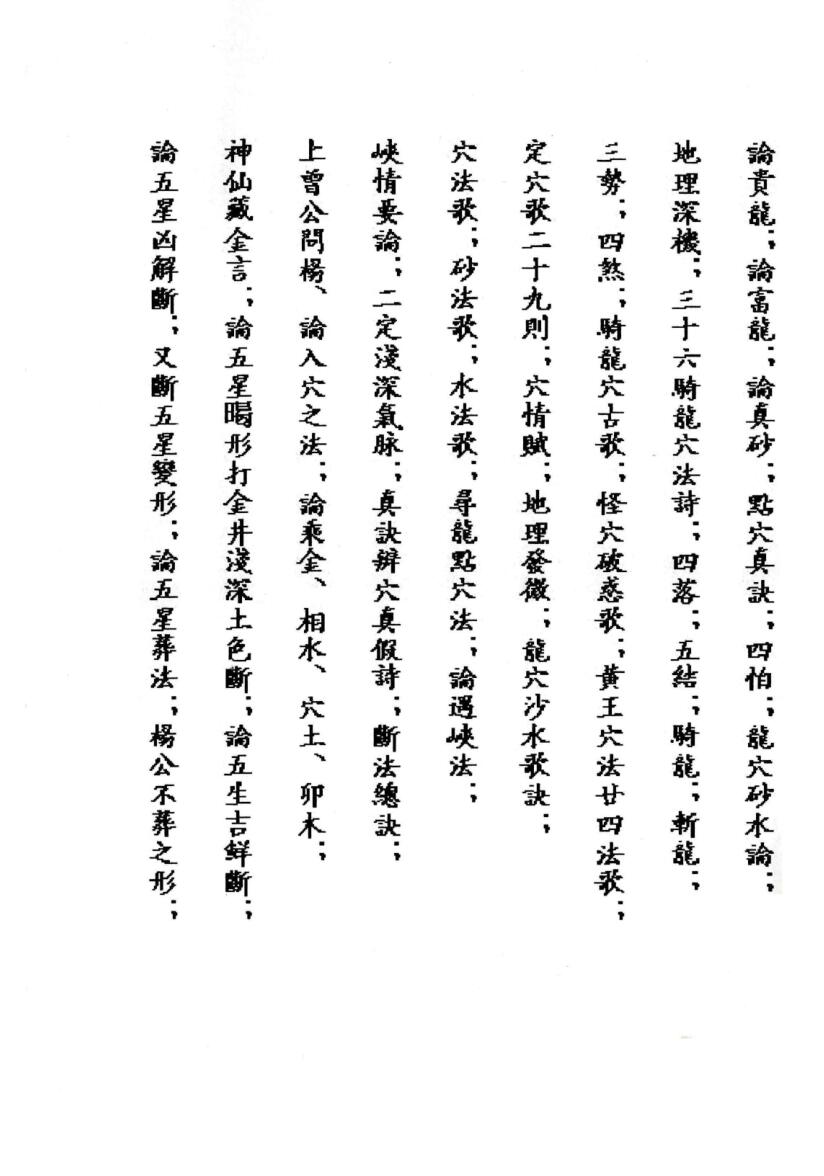 論貴龍；論富龍；論真砂；點穴真訣；四怕；龍穴砂水論；
地理深機；三十六騎龍穴法詩；四落；五結；騎龍；斬龍；
三勢；四煞；騎龍穴古歌；怪穴破惑歌；黃王穴法廿四法歌；
定穴歌二十九則；穴情賦；地理發微；龍穴沙水歌訣；
穴法歌；砂法歌；水法歌；尋龍點穴法；論遇峽法；
峽情要論；二定淺深氣脉；真訣辨穴真假詩；斷法總訣；
上曾公問楊、論入穴之法；論乘金、相水、穴土、卯木；
神仙藏金言；論五星暍形打金井淺深土色斷；論五生吉鲜斷；
論五星凶解斷；又斷五星變形；論五星葬法；楊公不葬之形；